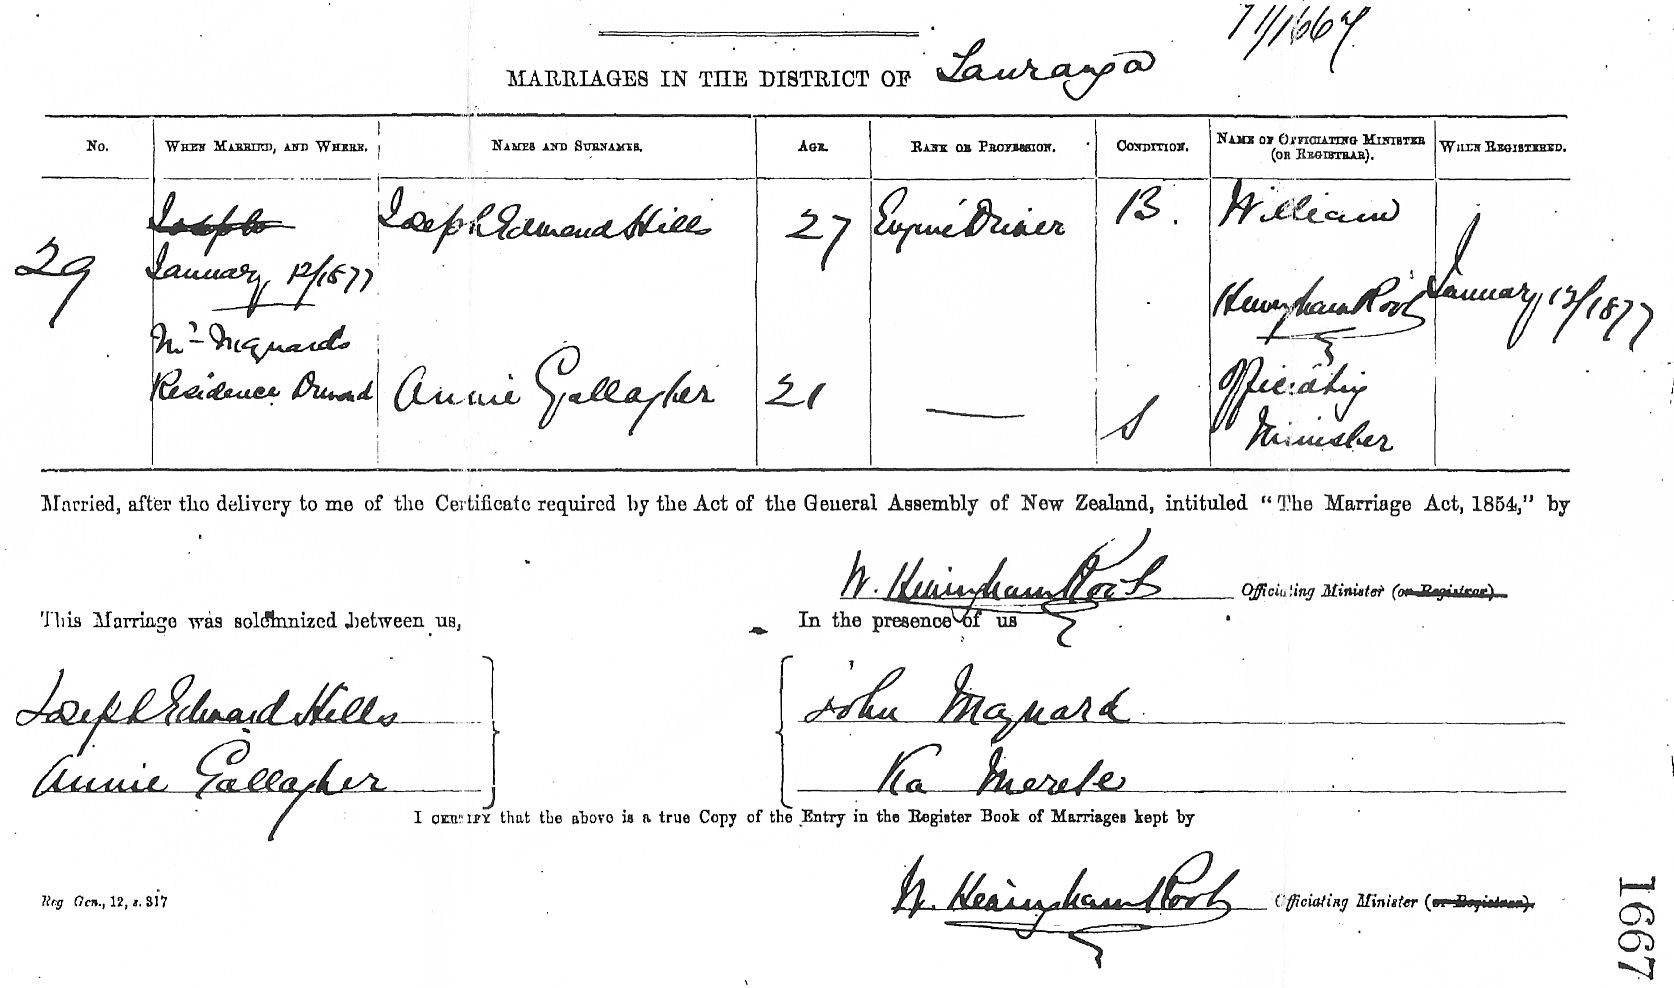 71/1667
MARRIAGES IN THE DISTRICT OF Tauranga
No. WHEN MARRIED, AND WHERE. NAMES AND SURNAMES. AGE. RANK OR PROFESSION. CONDITION. NAME OF OFFICIATING MINISTER (OR REGISTRAR). WHEN REGISTERED.
29
Joseph
January 12/1877
Mr Maynards
Residence Ormond
Joseph Edward Hills
Annie Gallagher
27
21
Engine Driver
—
B.
S
William
Heningham Root
Officiating
Minister
January 12/1877
Married, after the delivery to me of the Certificate required by the Act of the General Assembly of New Zealand, intituled “The Marriage Act, 1854,” by
W. Heningham Root Officiating Minister (or Registrar).
This Marriage was solemnized between us,
In the presence of us
Joseph Edward Hills
Annie Gallagher
John Maynard
Ka Merete
I CERTIFY that the above is a true Copy of the Entry in the Register Book of Marriages kept by
W. Heningham Root Officiating Minister (or Registrar).
Reg Gen., 12, s. 317
1667